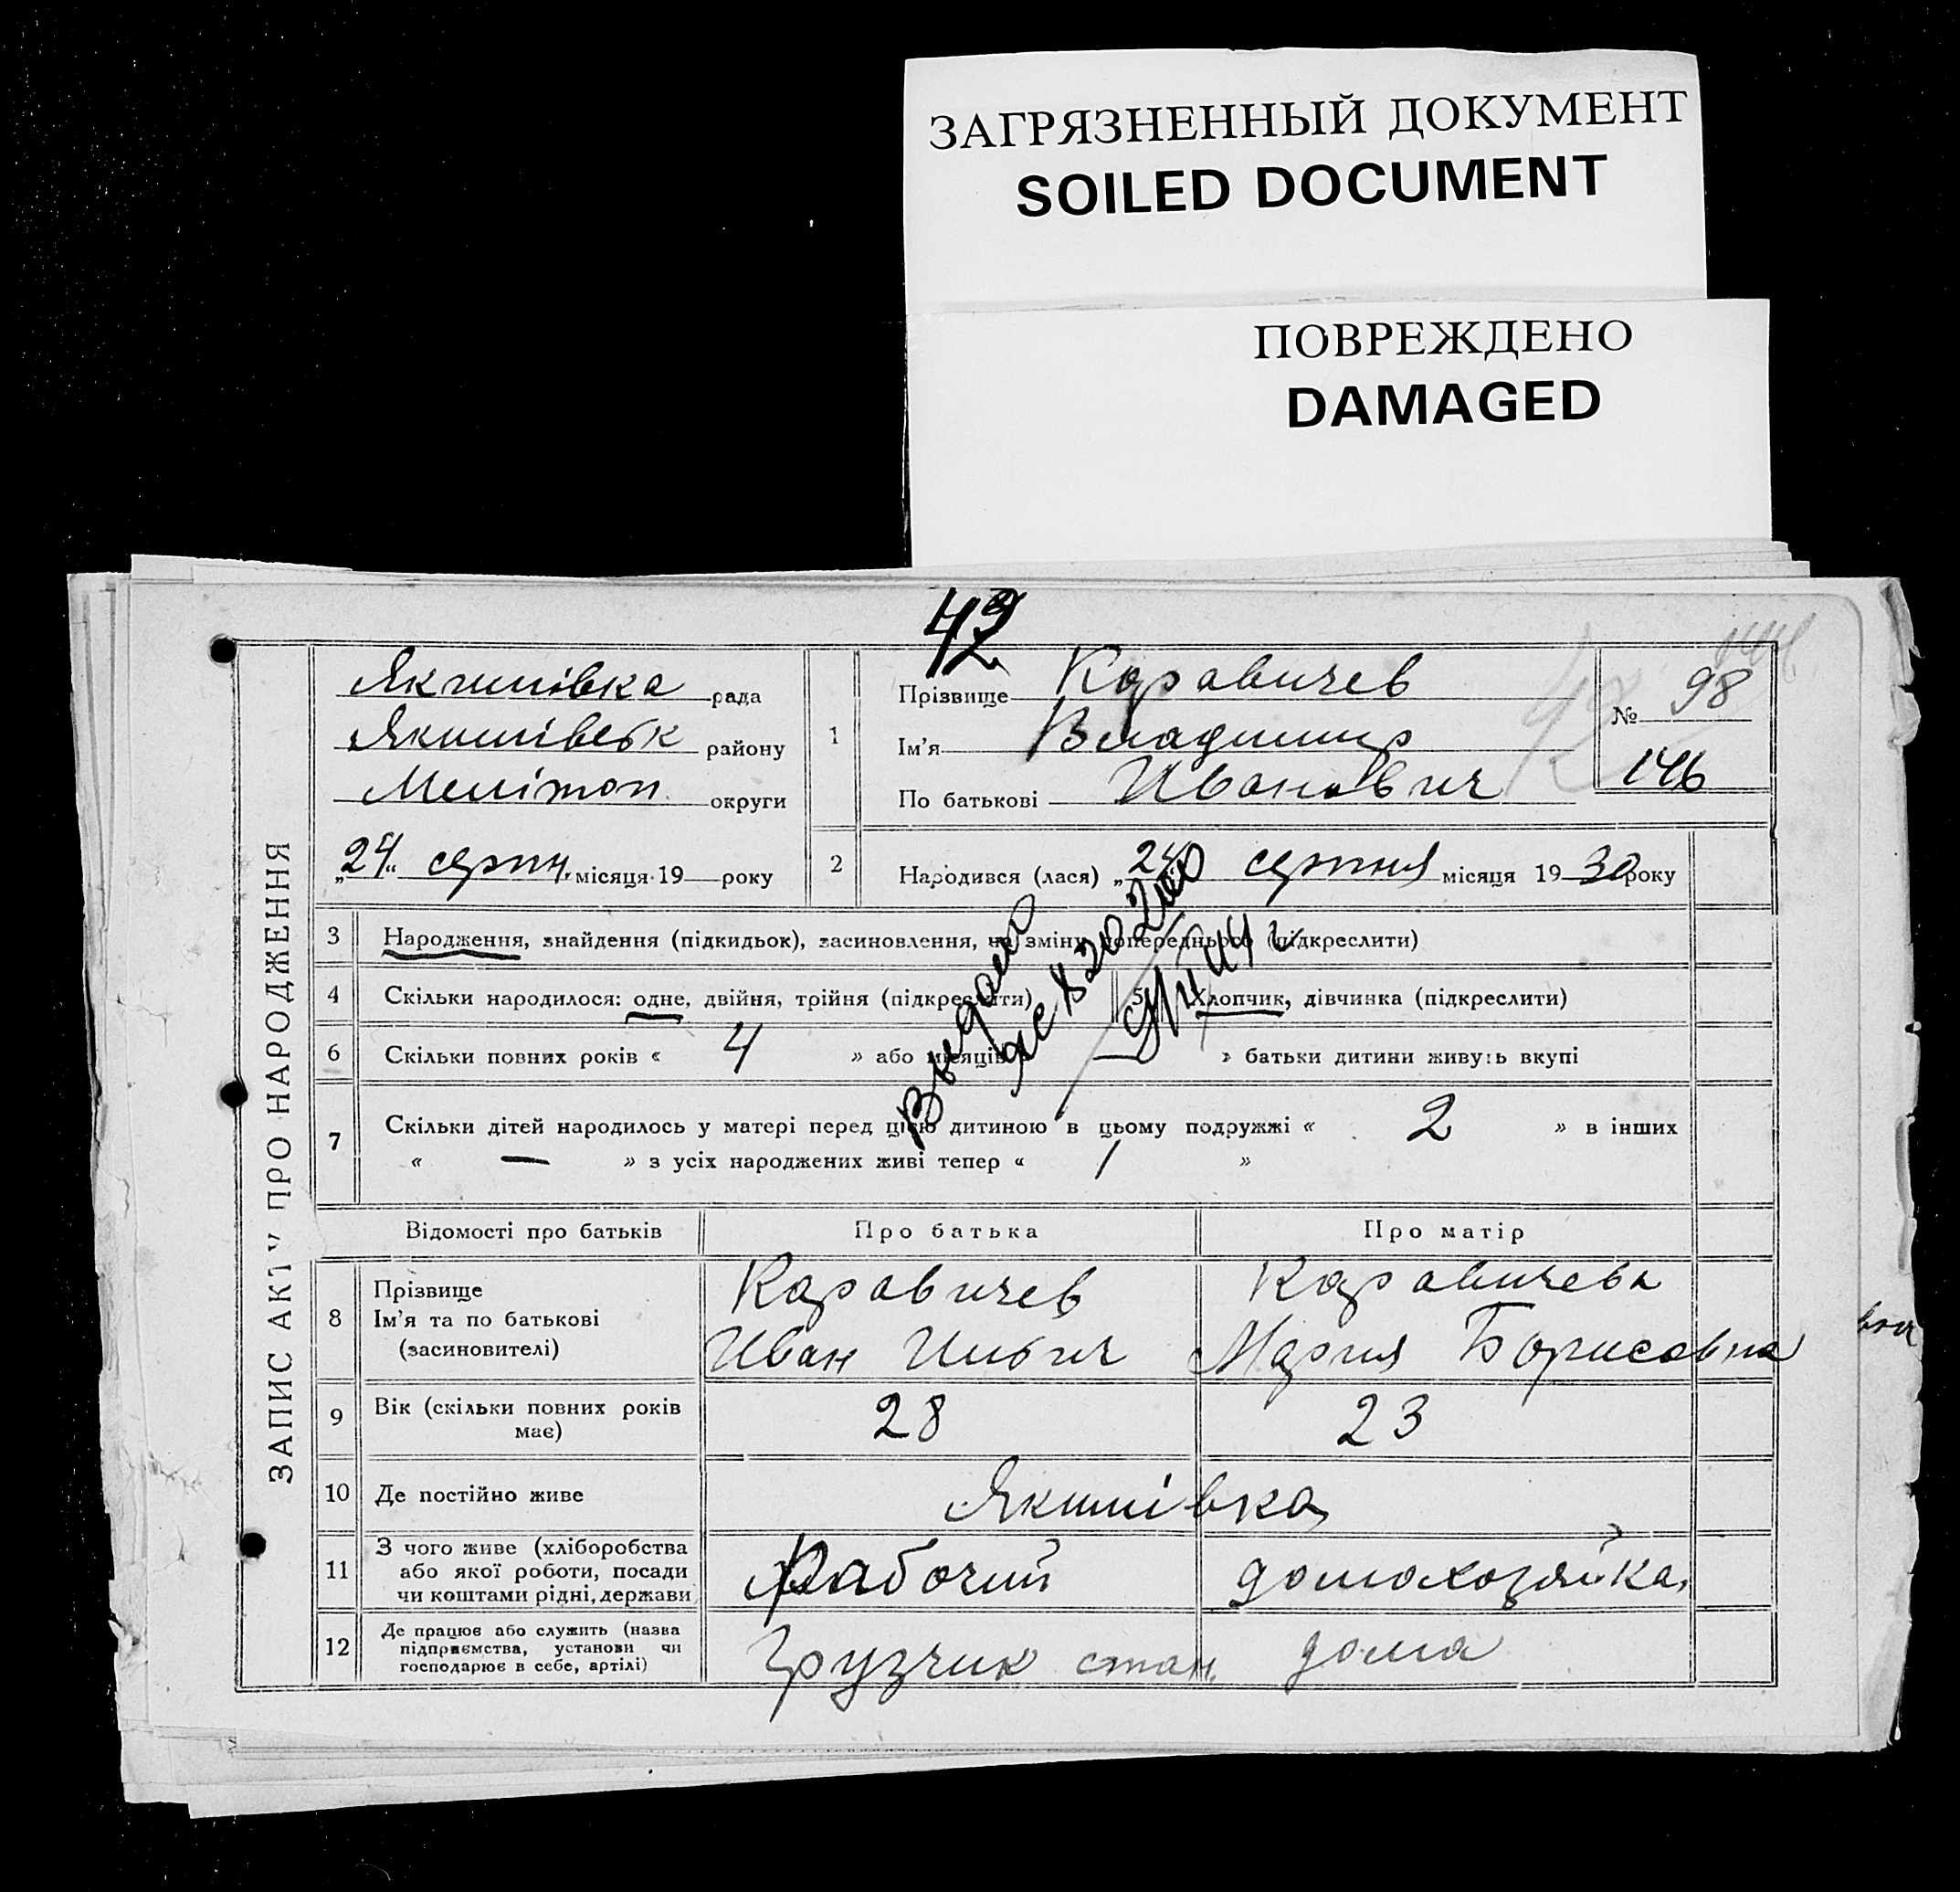 ЗАГРЯЗНЕННЫЙ ДОКУМЕНТ
SOILED DOCUMENT
ПОВРЕЖДЕНО
DAMAGED
42
ЗАПИС АКТУ ПРО НАРОДЖЕННЯ
Якимівка рада
Якимівськ району
Меліtop округи
„24“ серпн. місяця 19 року
1
Прізвище Каравичев
Ім'я Владимир
По батькові Иванович
№ 98
146
2 Народився (лася) „24 серпня місяця 1930 року
3 Народження, знайдення (підкидьок), засиновлення, на зміну попереднього (підкреслити)
4 Скільки народилося: одне, двійня, трійня (підкреслити)
5 Хлопчик, дівчинка (підкреслити)
6 Скільки повних років « 4 » або місяців — » батьки дитини живуть вкупі
7 Скільки дітей народилось у матері перед цією дитиною в цьому подружжі « 2 » в інших
« — » з усіх народжених живі тепер « 1 »
Выдано
Відомості про батьків Про батька Про матір
8 Прізвище
Ім'я та по батькові
(засиновителі)
Каравичев
Иван
Каравичева
Мария Борисовна
9 Вік (скільки повних років
має)
28 23
10 Де постійно живе Якимівка
11 З чого живе (хліборобства
або якої роботи, посади
чи коштами рідні, держави
Рабочий домохозяйка
12 Де працює або служить (назва
підприємства, установи чи
господарює в себе, артілі)
Грузчик стан. дома